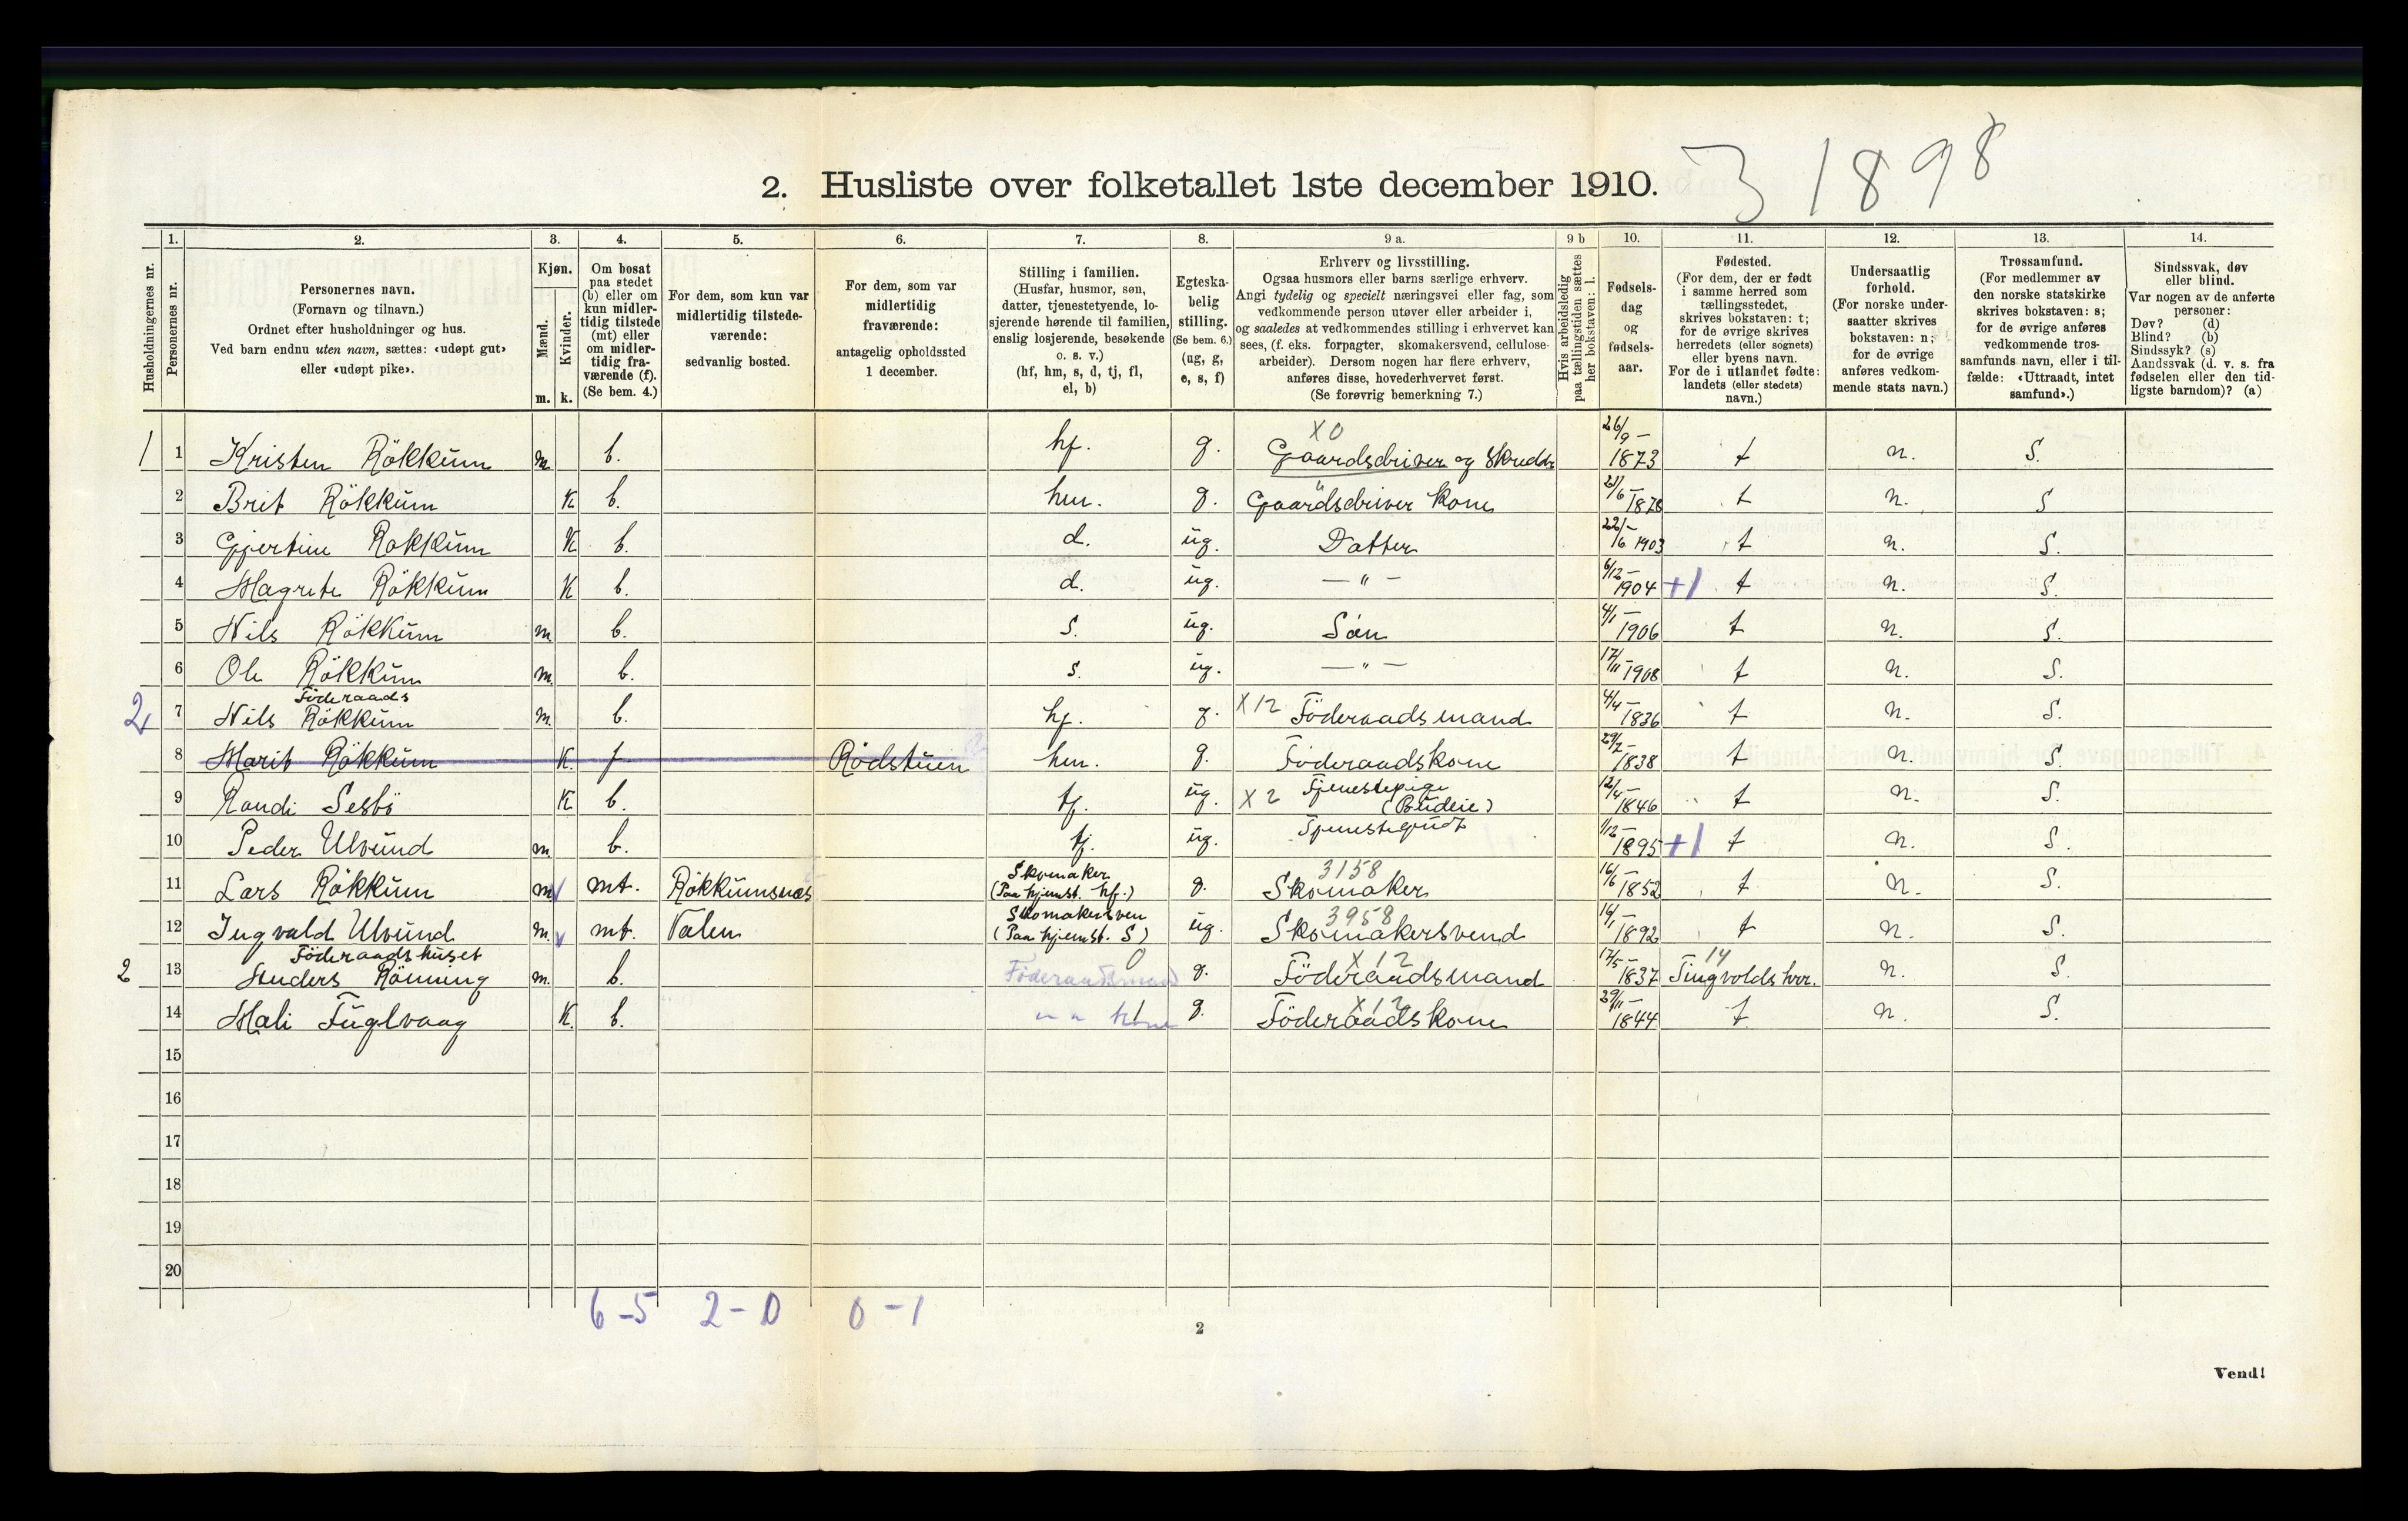 3 1898
2. Husliste over folketallet 1ste december 1910.
1. 2. 3. 4. 5. 6. 7. 8. 9 a. 9 b 10. 11. 12. 13. 14.
Husholdningernes nr.
Personernes nr.
Personernes navn.
(Fornavn og tilnavn.)
Ordnet efter husholdninger og hus.
Ved barn endnu uten navn, sættes: «udøpt gut»
eller «udøpt pike».
Kjøn.
Mænd.
Kvinder.
m. k.
Om bosat
paa stedet
(b) eller om
kun midler-
tidig tilstede
(mt) eller
om midler-
tidig fra-
værende (f).
(Se bem. 4.)
For dem, som kun var
midlertidig tilstede-
værende:
sedvanlig bosted.
For dem, som var
midlertidig
fraværende:
antagelig opholdssted
1 december.
Stilling i familien.
(Husfar, husmor, søn,
datter, tjenestetyende, lo-
sjerende hørende til familien,
enslig losjerende, besøkende
o. s. v.)
(hf, hm, s, d, tj, fl,
el, b)
Egteska-
belig
stilling.
(Se bem. 6.)
(ug, g,
e, s, f)
Erhverv og livsstilling.
Ogsaa husmors eller barns særlige erhverv.
Angi tydelig og specielt næringsvei eller fag, som
vedkommende person utøver eller arbeider i,
og saaledes at vedkommendes stilling i erhvervet kan
sees, (f. eks. forpagter, skomakersvend, cellulose-
arbeider). Dersom nogen har flere erhverv,
anføres disse, hovederhvervet først.
(Se forøvrig bemerkning 7.)
Hvis arbeidsledig
paa tællingstiden sættes
her bokstaven: l.
Fødsels-
dag
og
fødsels-
aar.
Fødested.
(For dem, der er født
i samme herred som
tællingsstedet,
skrives bokstaven: t;
for de øvrige skrives
herredets (eller sognets)
eller byens navn.
For de i utlandet fødte:
landets (eller stedets)
navn.)
Undersaatlig
forhold.
(For norske under-
saatter skrives
bokstaven: n;
for de øvrige
anføres vedkom-
mende stats navn.)
Trossamfund.
(For medlemmer av
den norske statskirke
skrives bokstaven: s;
for de øvrige anføres
vedkommende tros-
samfunds navn, eller i til-
fælde: «Uttraadt, intet
samfund».)
Sindssvak, døv
eller blind.
Var nogen av de anførte
personer:
Døv? (d)
Blind? (b)
Sindssyk? (s)
Aandssvak (d. v. s. fra
fødselen eller den tid-
ligste barndom)? (a)
X0
1 1 Kristen Rökkum m. b. hf. g. Gaardsdriver og 26/9 - 1873 t n. S.
2 Brit Rökkum K b. hm. g. Gaardsdriver Kone 21/6 - 1878 t n. S
3 Gjertine Rokkum K b. d. ug. Datter 22/6 - 1903 t n. S.
4 Magrete Rökkum K b. d. ug. — " — 6/12 - 1904 +1 t n. S.
5 Nils Rökkum m. b. S. ug. Sön 4/1 - 1906 t n. S.
6 Ole Rökkum m. b. s. ug. — " — 17/11 - 1908 t n. S.
Föderaads
2 7 Nils Rökkum m. b. hf. g. X12 Föderaadsmand 4/4 - 1836 t n. S.
8 Marit Rökkum K. f Rödstuen hm. g. Föderaadskone 29/7 - 1838 t n. S.
9 Randi Sesbö K b. tj. ug. X2 Tjenestepige (Budeie) 12/4 - 1846 t n. S.
10 Peder Ulvund m. b. tj. ug. Tjenestegudt 1/12 - 1895 +1 t n. S.
Skomaker 3158
11 Lars Rökkum m mt. Rökkumsnæs (Paa hjemst. hf.) g. Skomaker 16/6 - 1852 t n. S.
Skomakersven 3958
12 Ingvald Ulvund m. mt. Valen (Paa hjemst. S) ug. Skomakersvend 16/1 - 1892 t n. S.
Föderaadshuset 0 X12 14
2 13 Anders Rönning m. b. Föderaadsmand g. Föderaadsmand 17/5 - 1837 Tingvolds hrr. n. S.
14 Mali Fuglvaag K. b. " " kone g. X12 Föderaadskone 29/11 - 1844 t n. S.
15
16
17
18
19
20
6 - 5 2 - 0 0 - 1
2
Vend!